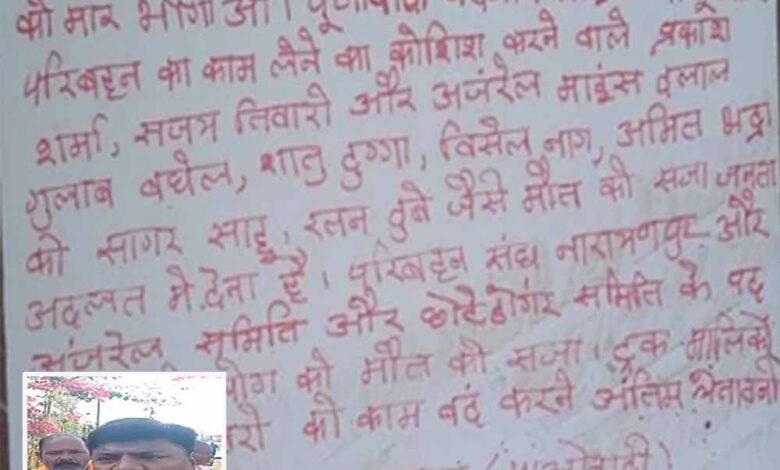 को मार भगाओ।
परिबहन का काम लेने का कोशिश करने वाले प्रकाश
शर्मा, सजय तिवारी और अजंरेल माइंस दलाल
गुलाब बघेल, शातु दुग्गा, विसेल नाग, अमित भद्रा
को सागर साहू, रतन दुबे जैसे मौत की सजा जनता
अदालत मे देना है। परिबहन संघ नारायणपुर और
अंजरेल समिति और छोटेडोंगर समिति के
को मौत की सजा। ट्रक मालिकों
को काम बंद करने अंतिम चेतावनी